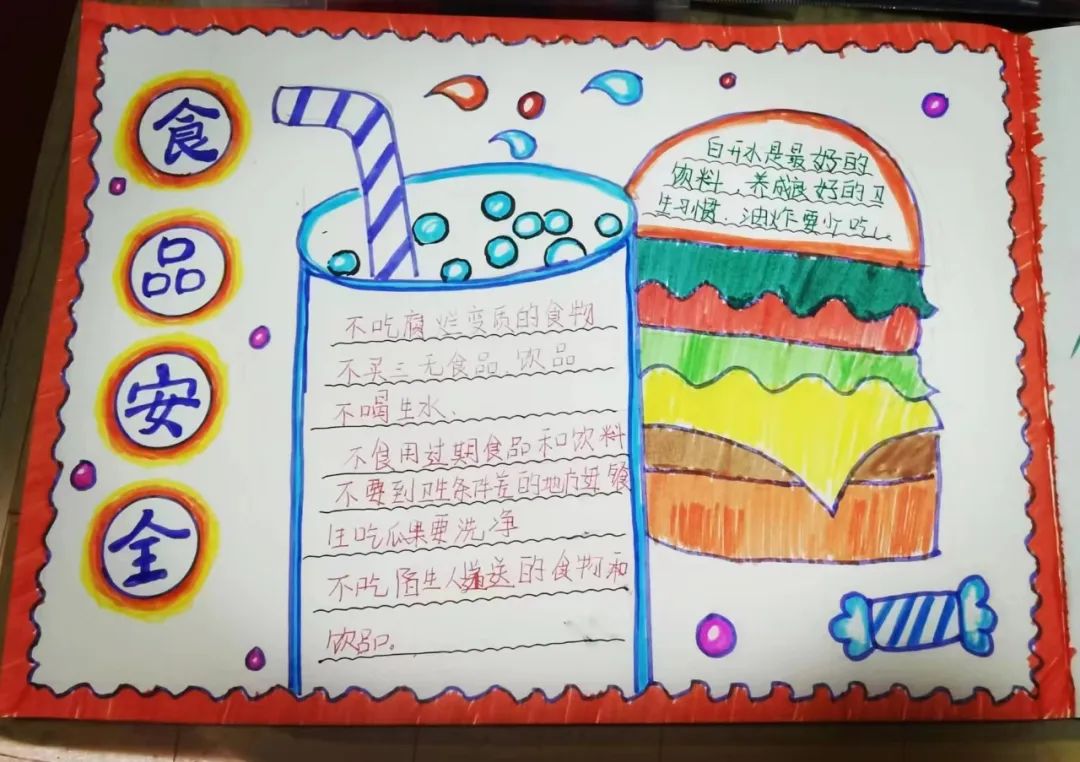 食
品
安
全
不吃腐烂变质的食物
不买三无食品、饮品
不喝生水、
不食用过期食品和饮料
不要到卫生条件差的地方买餐
生吃瓜果要洗净
不吃陌生人递送的食物和
饮品。
白开水是最好的
饮料、养成良好的卫
生习惯、油炸要少吃。